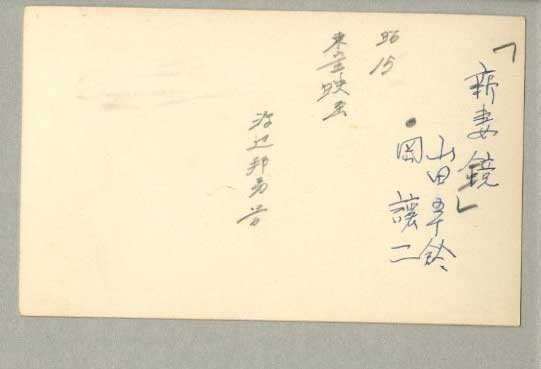 「新妻鏡」
山田五十鈴
岡譲二
昭15
東宝映画
渡辺邦男